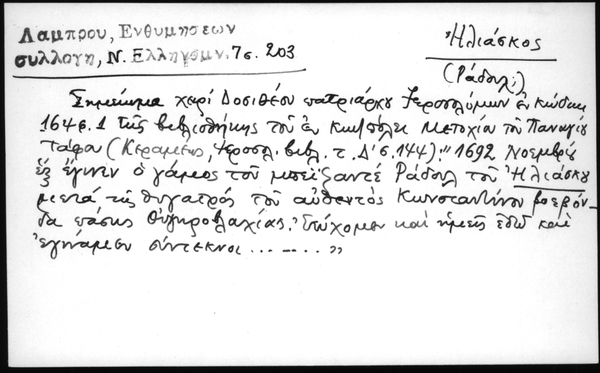 Λαμπρου, Ενθυμησεων
συλλογη, Ν. Ελληνομν. 7 σ. 203
Ἠλιάσκος
(Ράδουλ;)
Σημείωμα χειρί Δοσιθέου πατριάρχου Ἱεροσολύμων ἐν κώδικι
1646.1 τῆς βιβλιοθήκης τοῦ ἐν Κων/πόλει Μετοχίου τοῦ Παναγίου
Τάφου (Κεραμέως, Ἱεροσολ. βιβλ. τ. Δ' σ. 144). "1692 Νοεμβρίου
ἔγινεν ὁ γάμος τοῦ μπεϊζαντέ Ράδουλ τοῦ Ἠλιάσκου
μετά τῆς θυγατρός τοῦ αὐθεντός Κωνσταντίνου βοεβόν-
δα πάσης Οὐγκροβλαχίας. Ἐτύχομεν καί ἡμεῖς ἐδῶ καί
ἐγινάμεν σύντεκνοι ..... "